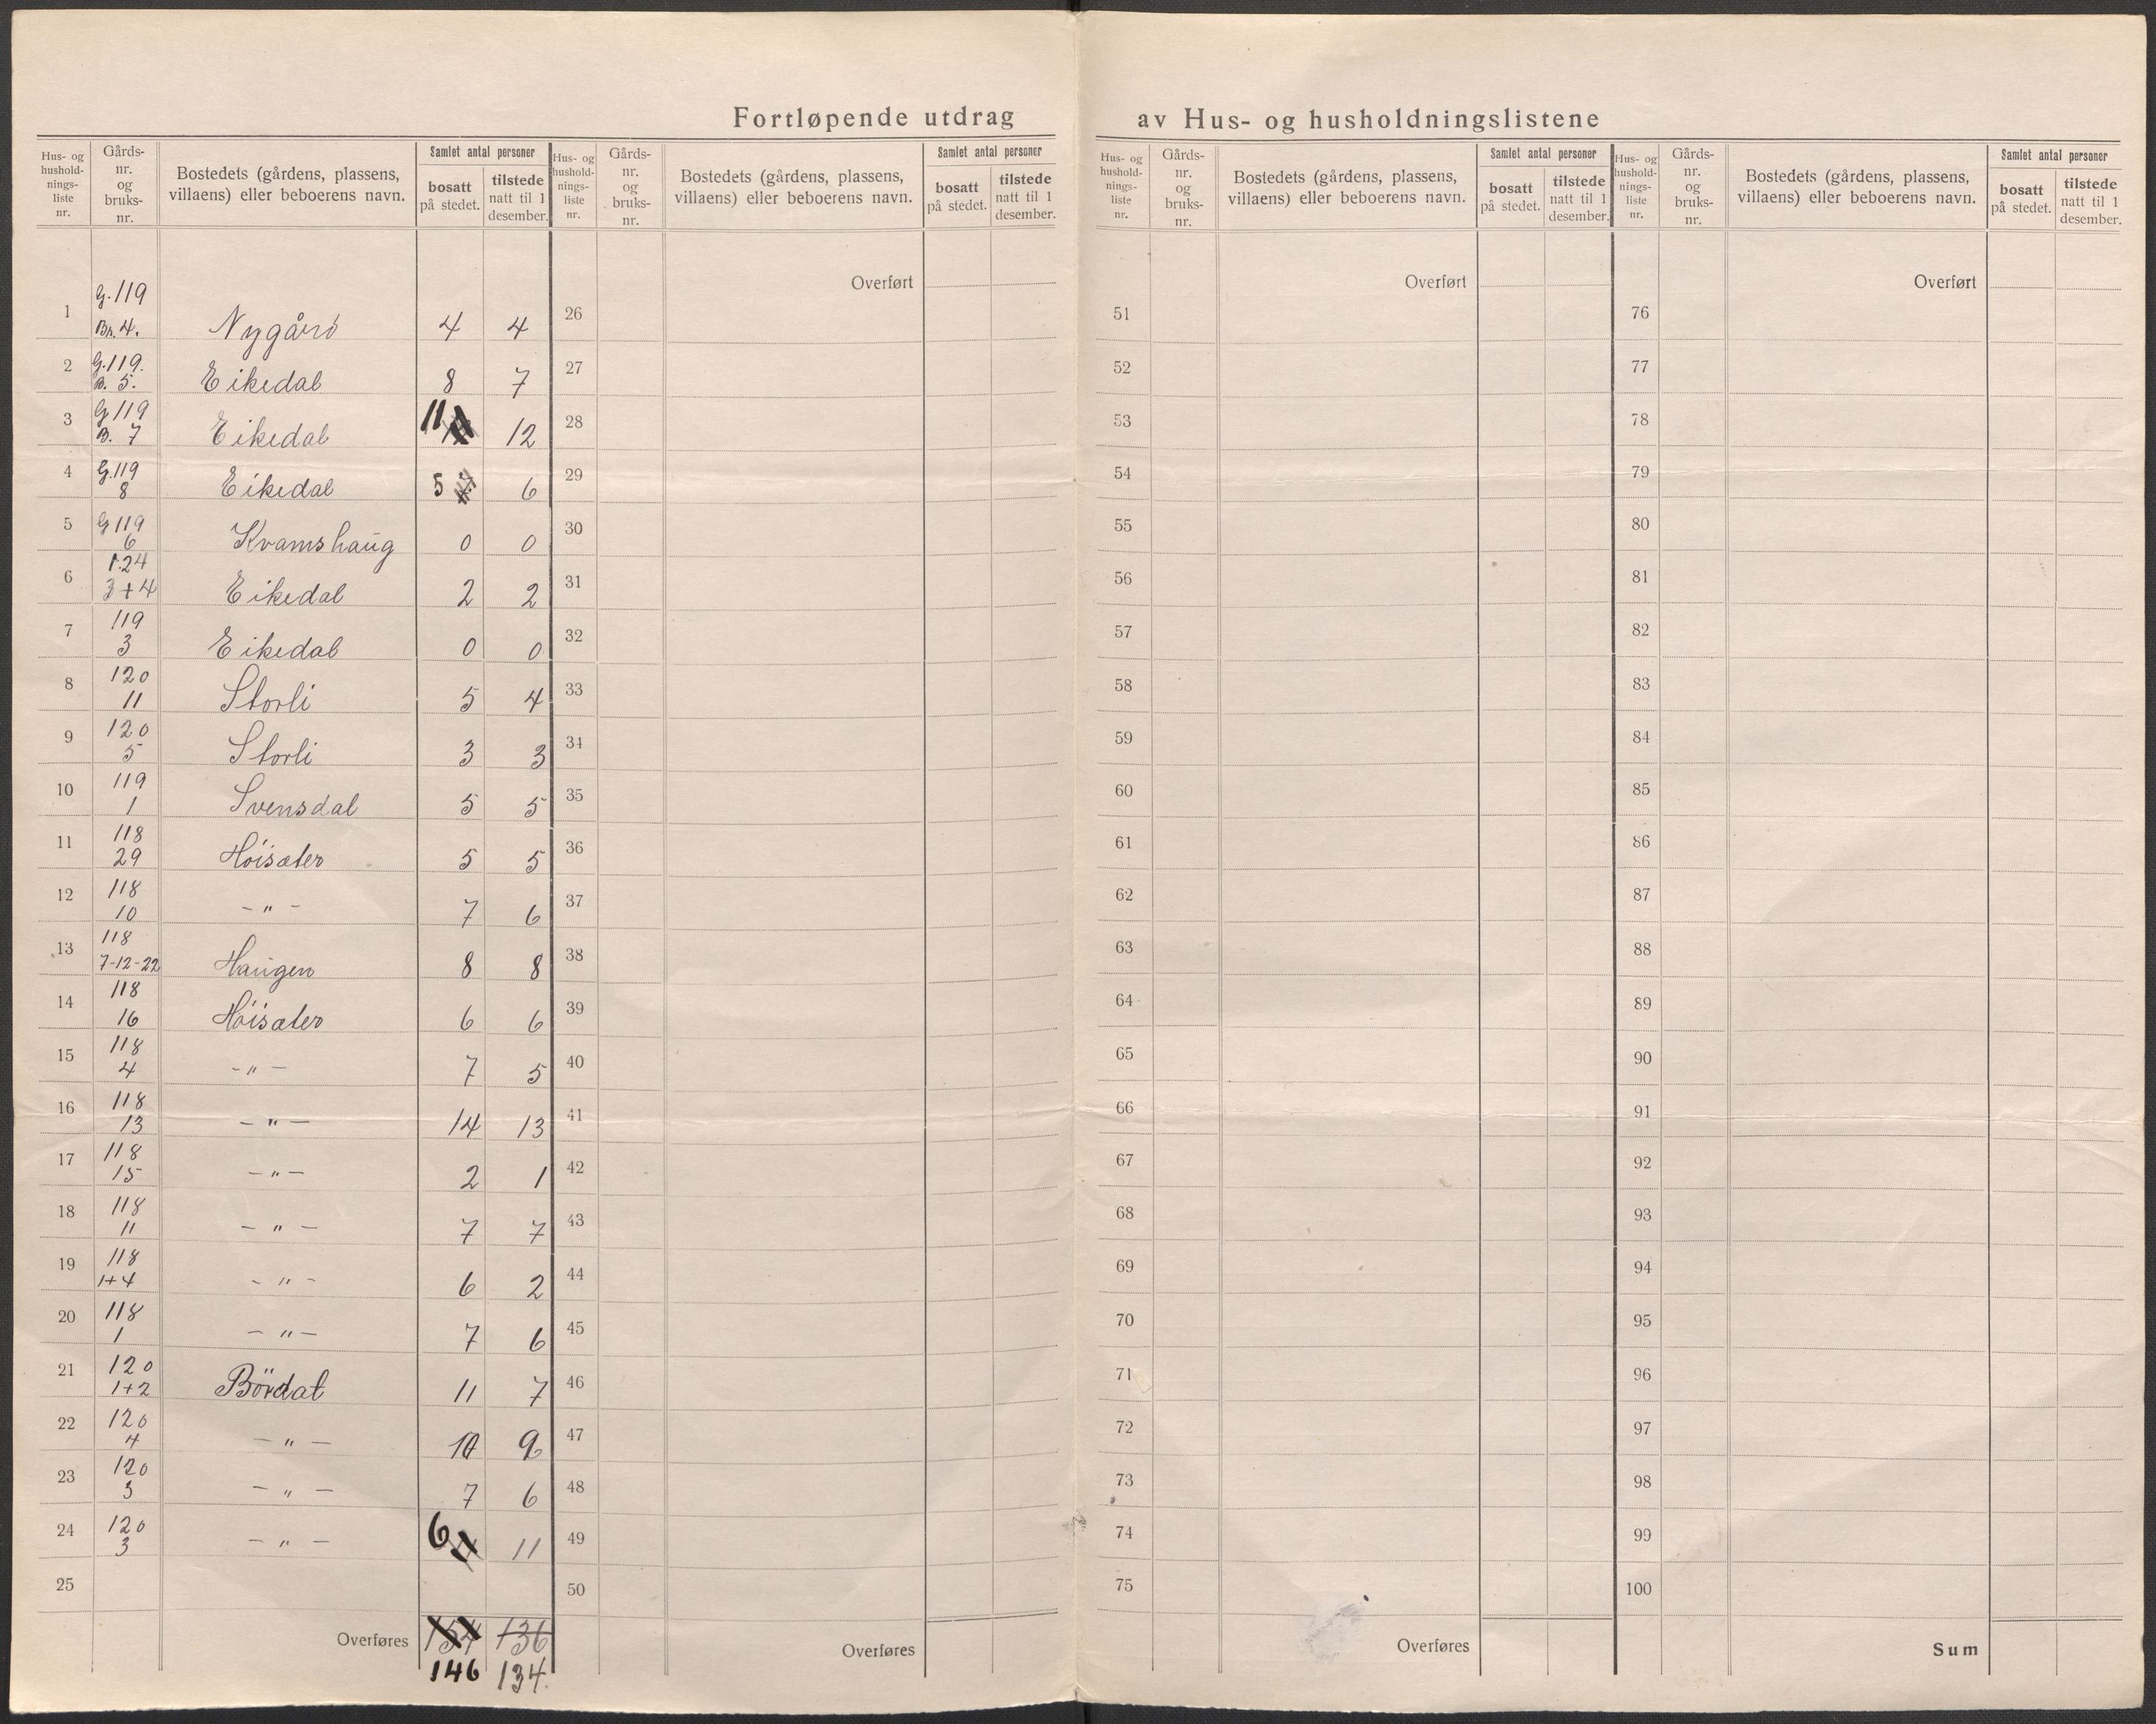 Fortløpende utdrag av Hus- og husholdningslistene
Hus- og hushold- nings- liste nr.
Gårds- nr. og bruks- nr.
Bostedets (gårdens, plassens, villaens) eller beboerens navn.
Samlet antal personer
bosatt på stedet.
tilstede natt til 1 desember.
Hus- og hushold- nings- liste nr.
Gårds- nr. og bruks- nr.
Bostedets (gårdens, plassens, villaens) eller beboerens navn.
Samlet antal personer
bosatt på stedet.
tilstede natt til 1 desember.
Hus- og hushold- nings- liste nr.
Gårds- nr. og bruks- nr.
Bostedets (gårdens, plassens, villaens) eller beboerens navn.
Samlet antal personer
bosatt på stedet.
tilstede natt til 1 desember.
Hus- og hushold- nings- liste nr.
Gårds- nr. og bruks- nr.
Bostedets (gårdens, plassens, villaens) eller beboerens navn.
Samlet antal personer
bosatt på stedet.
tilstede natt til 1 desember.
1 G.119 Br.4. Nygård 4 4
2 G.119. B. 5. Eikedal 8 7
3 G 119 B. 7 Eikedal 11 12
4 G.119 8 Eikedal 5 6
5 G 119 6 Kvamshaug 0 0
6 124 3+4 Eikedal 2 2
7 119 3 Eikedal 0 0
8 120 11 Storli 5 4
9 120 5 Storli 3 3
10 119 1 Svensdal 5 5
11 118 29 Høisæter 5 5
12 118 10 -"- 7 6
13 118 7-12-22 Haugen 8 8
14 118 16 Høisæter 6 6
15 118 4 -"- 7 5
16 118 13 -"- 14 13
17 118 15 -"- 2 1
18 118 11 -"- 7 7
19 118 1+4 -"- 6 2
20 118 1 -"- 7 6
21 120 1+2 Bördal 11 7
22 120 4 -"- 10 9
23 120 3 -"- 7 6
24 120 3 -"- 6 11
25
Overføres 154 136
146 134.
Overført
26
27
28
29
30
31
32
33
34
35
36
37
38
39
40
41
42
43
44
45
46
47
48
49
50
Overføres
Overført
51
52
53
54
55
56
57
58
59
60
61
62
63
64
65
66
67
68
69
70
71
72
73
74
75
Overføres
Overført
76
77
78
79
80
81
82
83
84
85
86
87
88
89
90
91
92
93
94
95
96
97
98
99
100
Sum